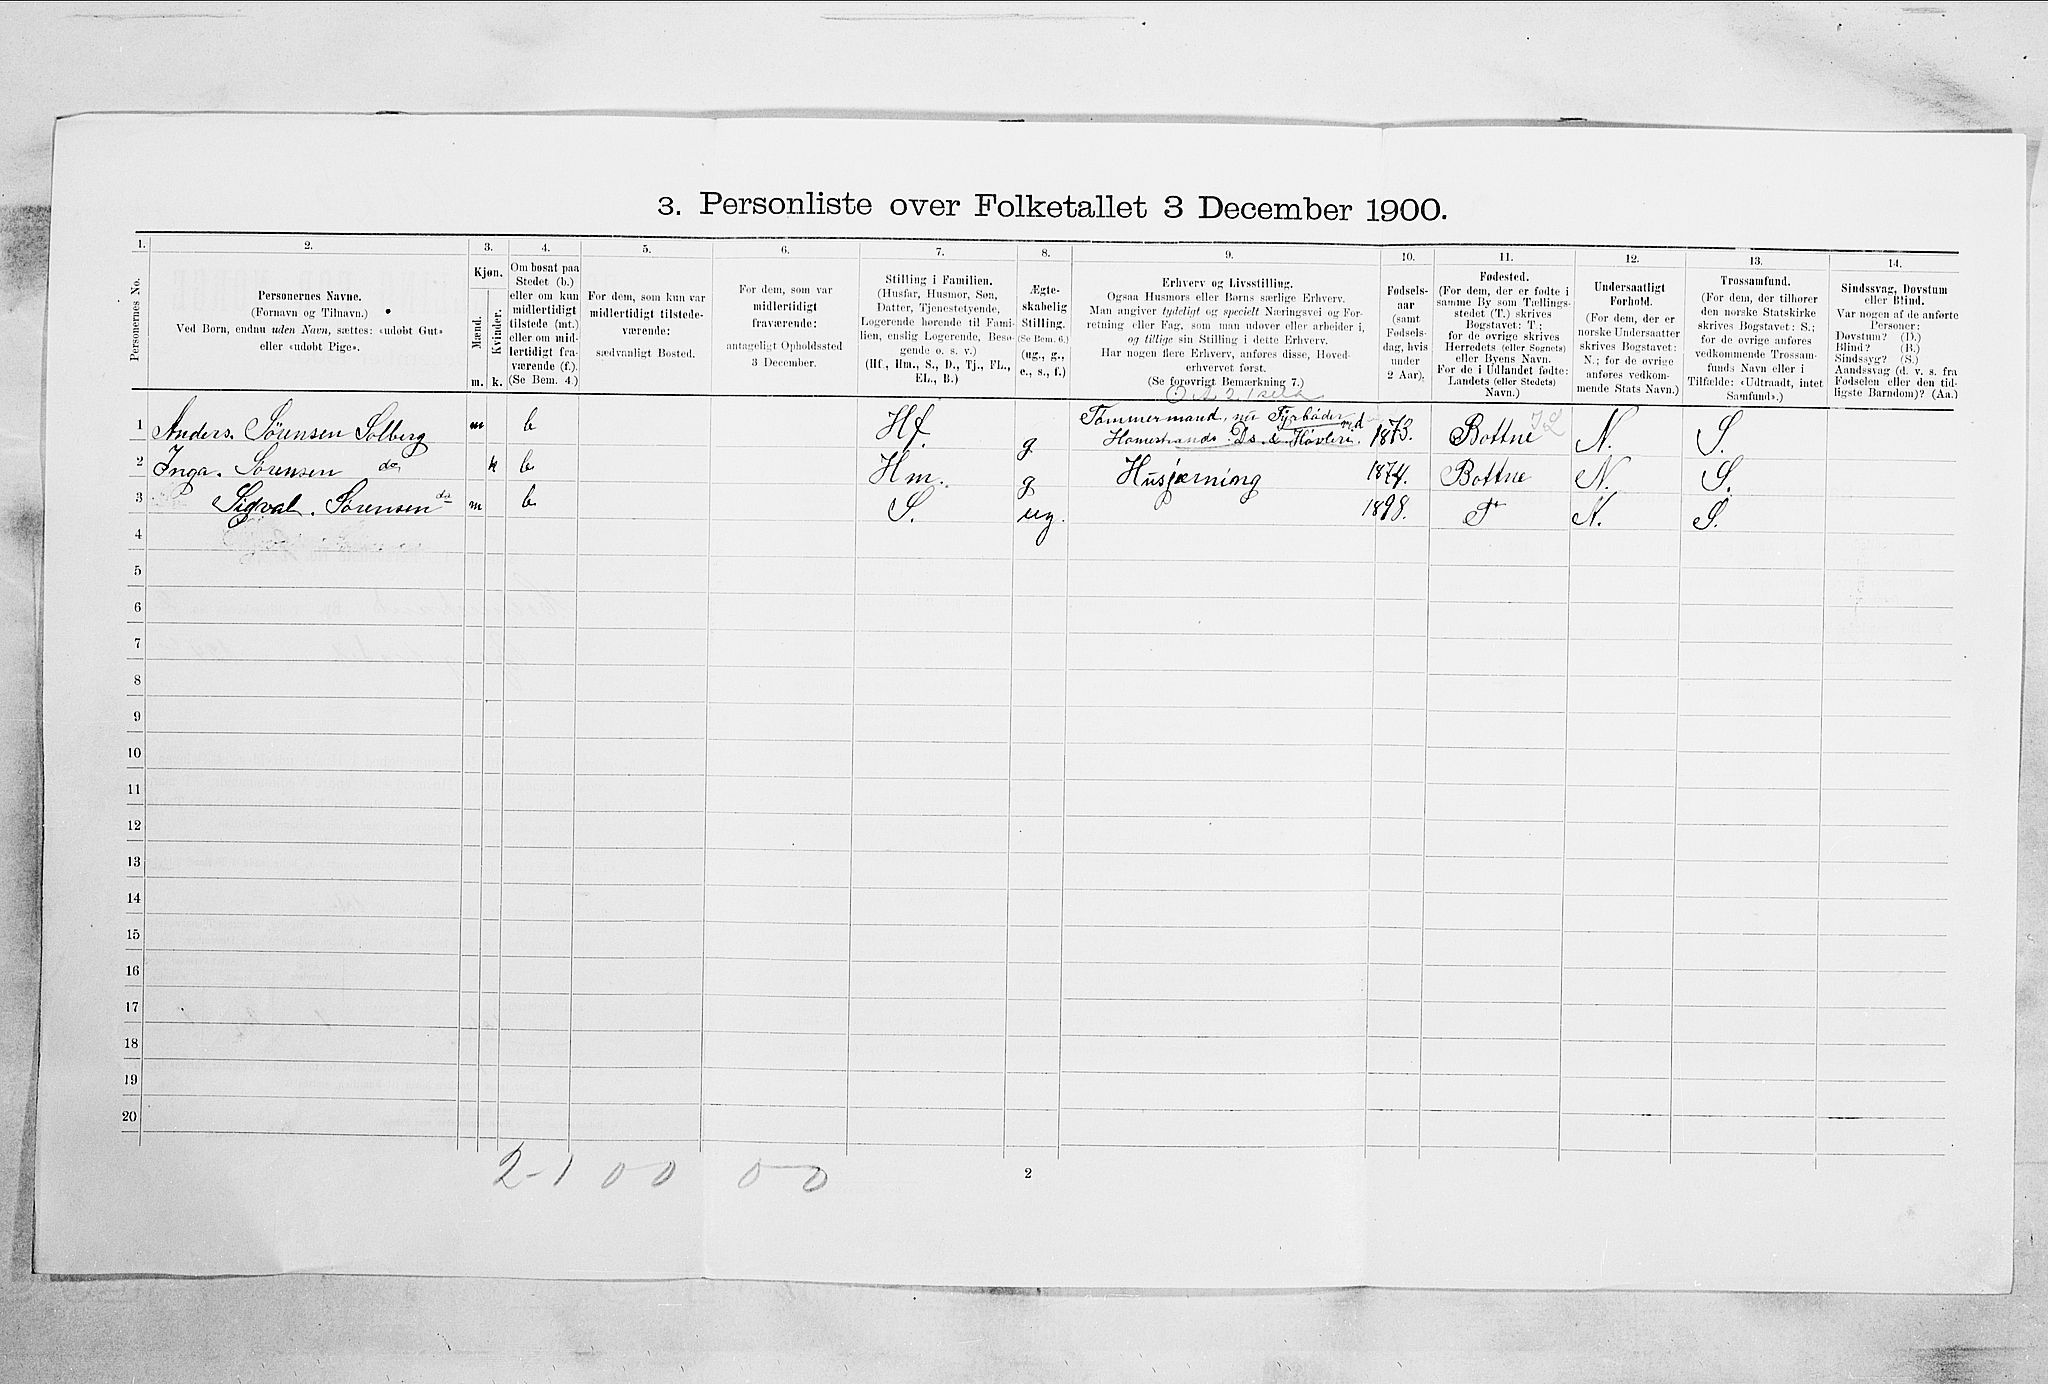 3. Personliste over Folketallet 3 December 1900.
1. 2. 3. 4. 5. 6. 7. 8. 9. 10. 11. 12. 13. 14.
Personernes No.
Personernes Navne.
(Fornavn og Tilnavn.)
Ved Børn, endnu uden Navn, sættes: «udøbt Gut»
eller «udøbt Pige».
Kjøn.
Mænd.
Kvinder.
m. k.
Om bosat paa
Stedet (b.)
eller om kun
midlertidigt
tilstede (mt.)
eller om mid-
lertidigt fra-
værende (f.).
(Se Bem. 4.)
For dem, som kun var
midlertidigt tilstede-
værende:
sædvanligt Bosted.
For dem, som var
midlertidigt
fraværende:
antageligt Opholdssted
3 December.
Stilling i Familien.
(Husfar, Husmor, Søn,
Datter, Tjenestetyende,
Logerende hørende til Fami-
lien, enslig Logerende, Besø-
gende o. s. v.)
(Hf., Hm., S., D., Tj., FL.,
EL., B.)
Ægte-
skabelig
Stilling.
(Se Bem. 6.)
(ug., g.,
e., s., f.)
Erhverv og Livsstilling.
Ogsaa Husmors eller Børns særlige Erhverv.
Man angiver tydeligt og specielt Næringsvei og For-
retning eller Fag, som man udøver eller arbeider i,
og tillige sin Stilling i dette Erhverv.
Har nogen flere Erhverv, anføres disse, Hoved-
erhvervet først.
(Se forøvrigt Bemærkning 7.)
Fødsels-
aar
(samt
Fødsels-
dag, hvis
under
2 Aar).
Fødested.
(For dem, der er fødte i
samme By som Tællings-
stedet (T.) skrives
Bogstavet: T.;
for de øvrige skrives
Herredets (eller Sognets)
eller Byens Navn.
For de i Udlandet fødte:
Landets (eller Stedets)
Navn.)
Undersaatligt
Forhold.
(For dem, der er
norske Undersaatter
skrives Bogstavet:
N.; for de øvrige
anføres vedkom-
mende Stats Navn.)
Trossamfund.
(For dem, der tilhører
den norske Statskirke
skrives Bogstavet: S.;
for de øvrige anføres
vedkommende Trossam-
funds Navn eller i
Tilfælde: «Udtraadt, intet
Samfund».)
Sindssvag, Døvstum
eller Blind.
Var nogen af de anførte
Personer:
Døvstum? (D.)
Blind? (B.)
Sindssyg? (S.)
Aandssvag (d. v. s. fra
Fødselen eller den tid-
ligste Barndom)? (Aa.)
1 Anders. Sørensen Solberg m b Hf. g Tømmermand, ved Fyrbøder Holmestrands Ds & Høvleri. 1873. Bottne N. S.
2 Inga. Sørensen do k b Hm. g Husgjerning 1874. Bottne N. S.
3 Sigval. Sørensen do m b S. ug. 1898. T N. S.
4
5
6
7
8
9
10
11
12
13
14
15
16
17
18
19
20
2-1 0 0 0-0
2